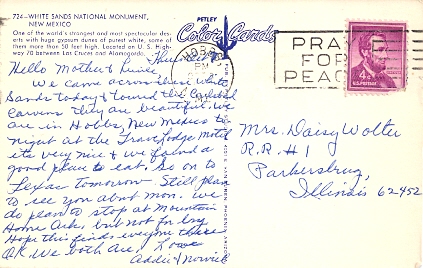 724—WHITE SANDS NATIONAL MONUMENT,
NEW MEXICO
One of the world's strangest and most spectacular des-
erts with huge gypsum dunes of purest white, some of
them more than 50 feet high. Located on U. S. High-
way 70 between Las Cruces and Alamogordo.
PETLEY
Color Cards
HOBBS
PM
PRAY
FOR
PEACE
4¢
U.S. POSTAGE
Hello Mother &
We came across these white
Sands today & toured the Carlsbad
Caverns They are beautiful. We
are in Hobbs, New Mexico to
night at the Travelodge Motel
its very nice & we found a
good place to eat. So on to
Texas tomorrow. Still plan
to see you about mon. We
do plan to stop at Mountain
Home Ark. but not for long
Hope this finds everyone there
O.K. We both are. Love
Addie & Norvil
Mrs. Daisy Wolter
R. R # 1
Parkersburg,
Illinois 62452